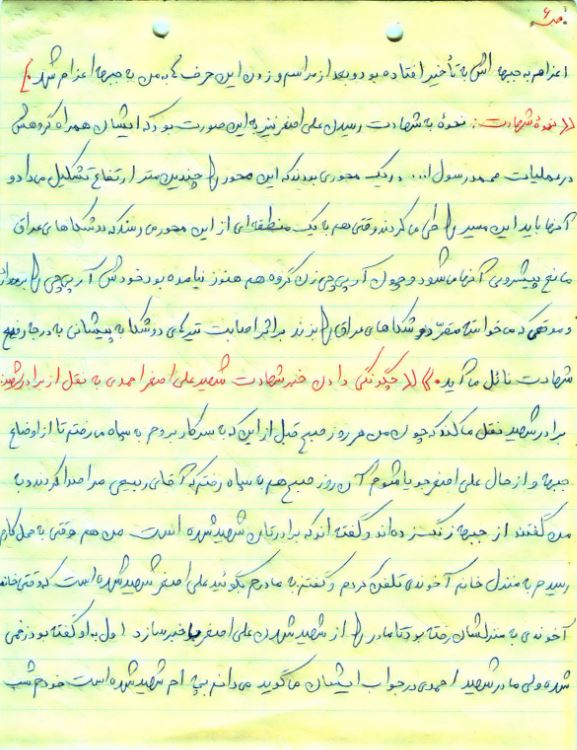 ص ۶
اعزام به جبهه اش به تأخیر افتاده بود و بعد از مراسم و زدن این حرف ها به من به جبهه اعزام شد.
(( نحوهٔ شهادت: نحوهٔ به شهادت رسیدن علی اصغر نیز به این صورت بود که ایشان همراه گروهش
در عملیات محمد رسول ا... در یک محوری بودند که این محور را چندین متر ارتفاع تشکیل می داد و
آنها باید این مسیر را طی می کردند وقتی هم به یک منطقه ای از این محور می رسند که دوشکا های عراق
مانع پیشروی آنها می شود و چون آر پی جی زن گروه هم هنوز نیامده بود خودش آر پی جی را برمیدارد
و موقعی که می خواسته مقرّ دوشکا های عراق را بزند بر اثر اصابت تیر کمای دوشکا به پیشانی به درجه رفیع
شهادت نائل می آید.)) (( چگونگی دادن خبر شهادت شهید علی اصغر احمدی به نقل از برادر شهید:
برادر شهید نقل می کند که چون من هر روز صبح قبل از این که به سر کار بروم به سپاه می رفتم تا از اوضاع
جبهه و از حال علی اصغر جویا شوم آن روز صبح هم به سپاه رفتم که آقای ربیعی مرا صدا کردند و به
من گفتند از جبهه زنگ زده اند و گفته اند که برادرتان شهید شده است من هم وقتی به محل کارم
رسیدم به منزل خانم آخوندی تلفن کردم و گفتم به مادرم بگوئید علی اصغر شهید شده است که وقتی خانم
آخوندی به منزلشان رفته بود تا مادر را از شهید شدن علی اصغر با خبر سازد اول به او گفته بود زخمی
شده ولی مادر شهید احمدی در جواب ایشان می گوید می دانم بچه ام شهید شده است خودم شب